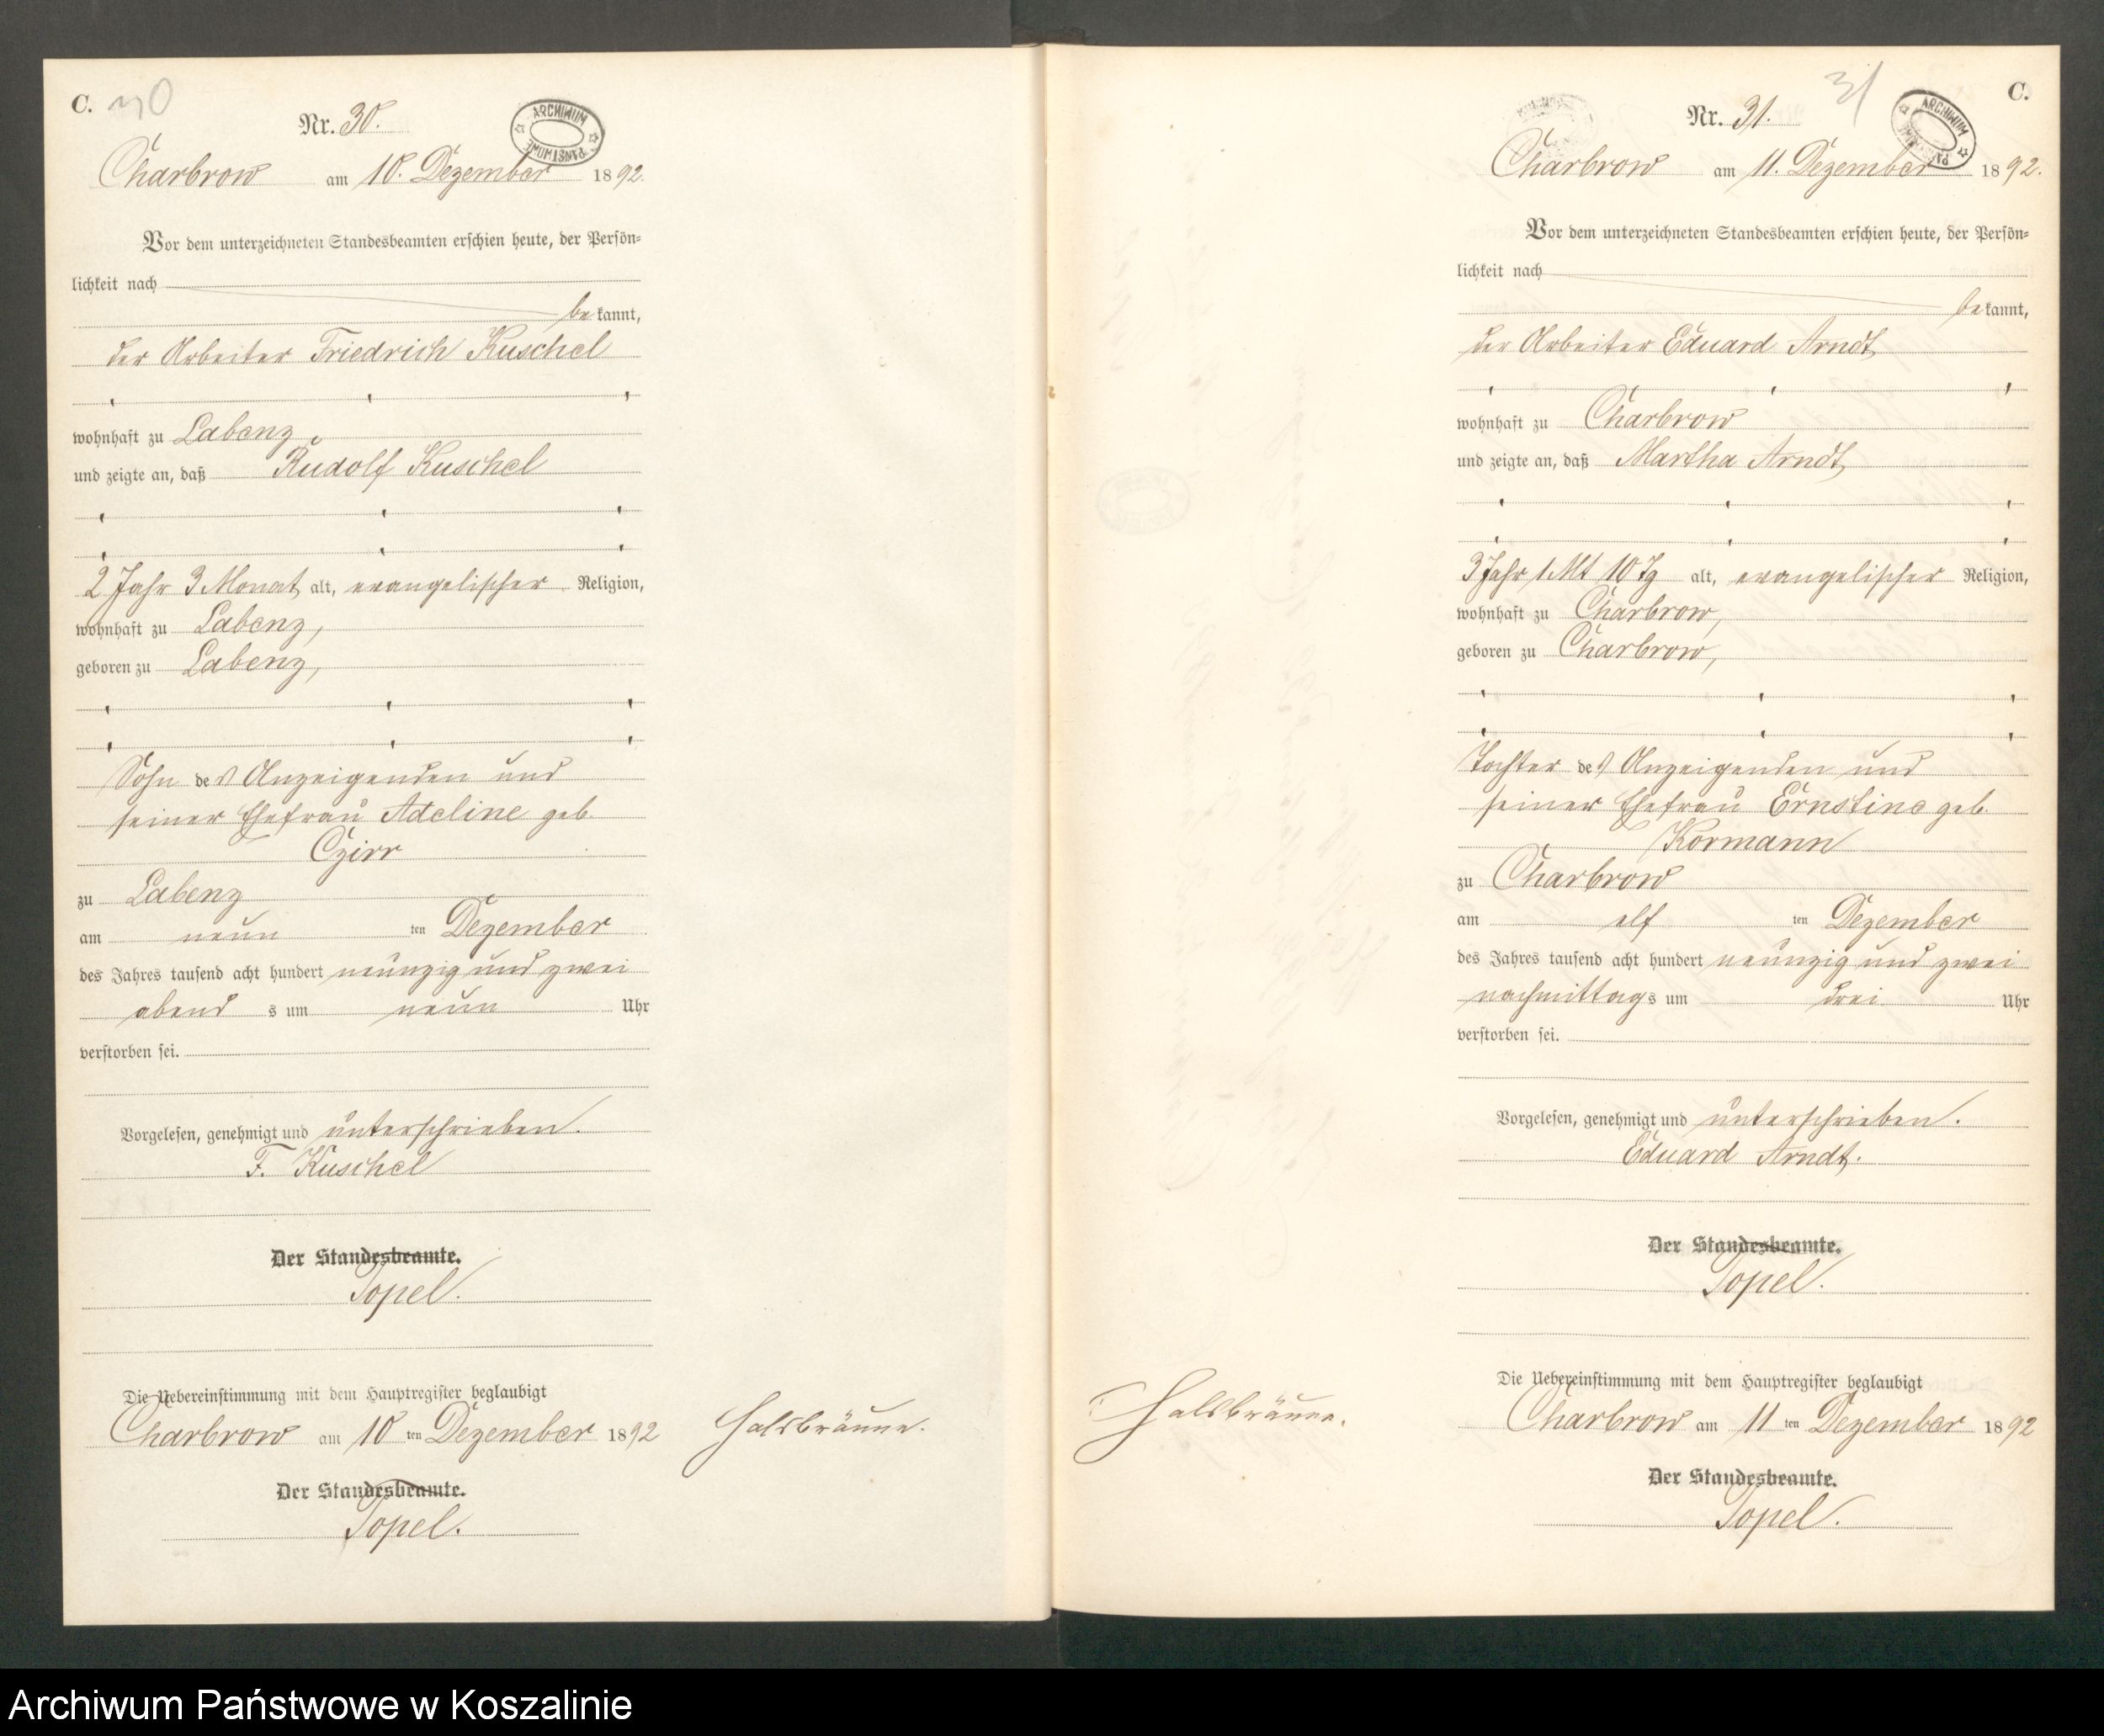 C. 30
Nr. 30.
ARCHIWUM PAŃSTWOWE
Charbrow am 10. Dezember 1892.
Vor dem unterzeichneten Standesbeamten erschien heute, der Persön-
lichkeit nach
bekannt,
der Arbeiter Friedrich Kuschel
wohnhaft zu Labenz
und zeigte an, daß Rudolf Kuschel
2 Jahr 3 Monat alt, evangelischer Religion,
wohnhaft zu Labenz,
geboren zu Labenz,
Sohn des Anzeigenden und
seiner Ehefrau Adeline geb.
Czirr
zu Labenz
am neun ten Dezember
des Jahres tausend acht hundert neunzig und zwei
abends um neun Uhr
verstorben sei.
Vorgelesen, genehmigt und unterschrieben.
F. Kuschel
Der Standesbeamte.
Topel.
Die Uebereinstimmung mit dem Hauptregister beglaubigt
Charbrow am 10 ten Dezember 1892
Der Standesbeamte.
Topel.
Halsbräune.
31 C.
Nr. 31.
ARCHIWUM PAŃSTWOWE
Charbrow am 11. Dezember 1892.
Vor dem unterzeichneten Standesbeamten erschien heute, der Persön-
lichkeit nach
bekannt,
der Arbeiter Eduard Arndt
wohnhaft zu Charbrow
und zeigte an, daß Martha Arndt,
3 Jahr 1 Mt 10 Tg alt, evangelischer Religion,
wohnhaft zu Charbrow,
geboren zu Charbrow,
Tochter des Anzeigenden und
seiner Ehefrau Ernstine geb.
Kormann
zu Charbrow
am elf ten Dezember
des Jahres tausend acht hundert neunzig und zwei
nachmittags um drei Uhr
verstorben sei.
Vorgelesen, genehmigt und unterschrieben.
Eduard Arndt.
Der Standesbeamte.
Topel.
Die Uebereinstimmung mit dem Hauptregister beglaubigt
Charbrow am 11 ten Dezember 1892
Der Standesbeamte.
Topel.
Halsbräune.
Archiwum Państwowe w Koszalinie